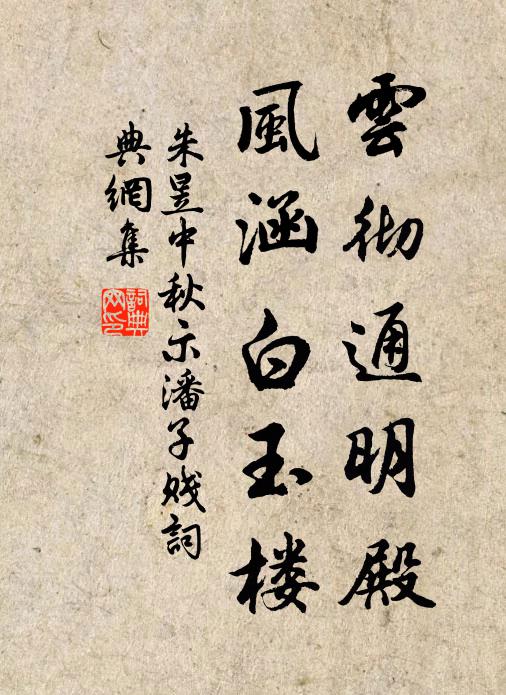 雲彻通明殿
風涵白玉楼
朱昱中秋示潘子贱詞
典網集
詞典网印